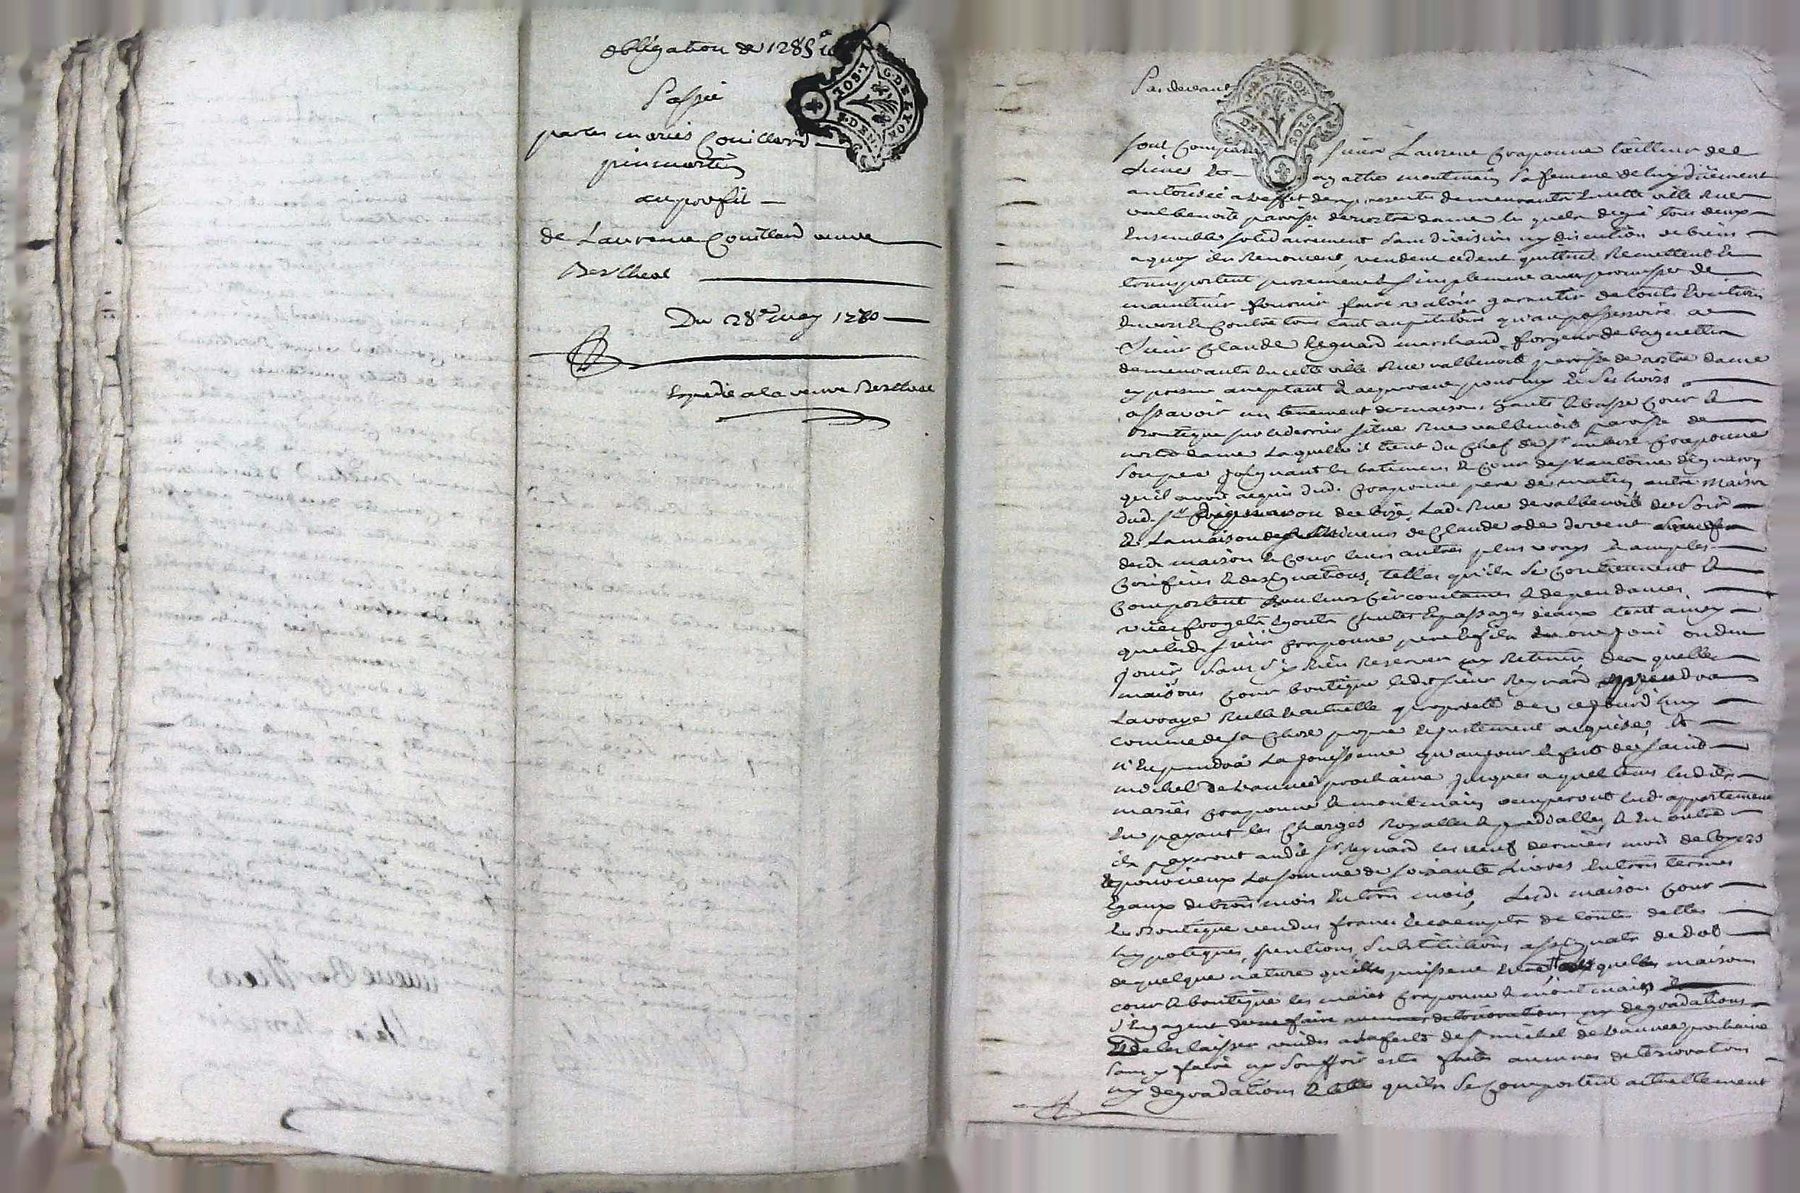 obligation de 1285
Passée
par les mariés Couillard
pinmartin
au profit
de Laurence Couillard veuve
Bertheas
Du 28e may 1780
Expedié a la veuve Bertheas
Pardevant
sont comparu sieur Laurent Craponne tailleur de
Limes et agathe montmain sa femme de luy düement
autorisée a l'effet des presentes demeurants en cette ville rue
valbenoite paroisse de nostre dame les quels de gré tous deux
Ensemble solidairement sans division ny discution de biens
a quoy ils Renoncent, vendent cedent quittent Remettent et
transportent purement et simplement avec promesse de
maintenir fournir faire valoir garantir de touts Evictions
Envers et contre tous tant au petitoire qu'au possessoire a
sieur Claude Regnard marchand forgeur de baguettes
demeurant en cette ville Rue valbenoite paroisse de nostre dame
cy present acceptant et acquereur pour luy et les hoirs
assavoir un tenement de maisons haute et basse cour et
Boutique sur le derrier situé Rue valbenoite paroisse de
nostre dame laquelle il tient du chef de sr Craponne
son pere joignant les batiments et cour de sr antoine
qu'il avoit acquis dud. Craponne pere de matin autre maison
dud. sr de bize, Ladt Rue de valbenoite de Soir
Et La maison de Claude de devent
desd. maison et cour leurs autres plus vrays et amples
Confins et designations, telles qu'ils se contiennent et
comportent circonstances et dependances,
vües forgets Egouts chutes et passages d'eaux tant ainsy
que led. sieur Craponne pere et fils En ont joui ou du
jouir sans s'y Rien Reserver ny Retenir, des quelles
maisons cour boutique led. sieur Regnard prendra
La vraye Reelle et actuelle proprieté dez ce jourd'huy
comme de sa chose propre et justement acquise, Et
n'En prendra La jouissance qu'au jour et feste de saint
michel de l'année prochaine jusques a quel tems lesdits
mariés Craponne et montmain occuperont lesd. appartements
En payant les charges Royalles et feodalles, & En outre
ils payeront audit sr Regnard les neuf derniers mois de loyers
La somme de soixante Livres En trois termes
Egaux de trois mois En trois mois, Lesd. maison cour
Et Boutique vendus francs et exempts de toutes dettes
hypoteques, pentions substitutions assignats de dot
de quelque nature qu'elles puissent etre quelles maisons
cour & boutique les mariés Craponne & montmain
s'Engagent
de les laisser vuides a la feste de st michel de l'année prochaine
sans y faire ny souffrir estre faites aucunes deteriorations
ny degradations & telles qu'ils se comportent actuellement